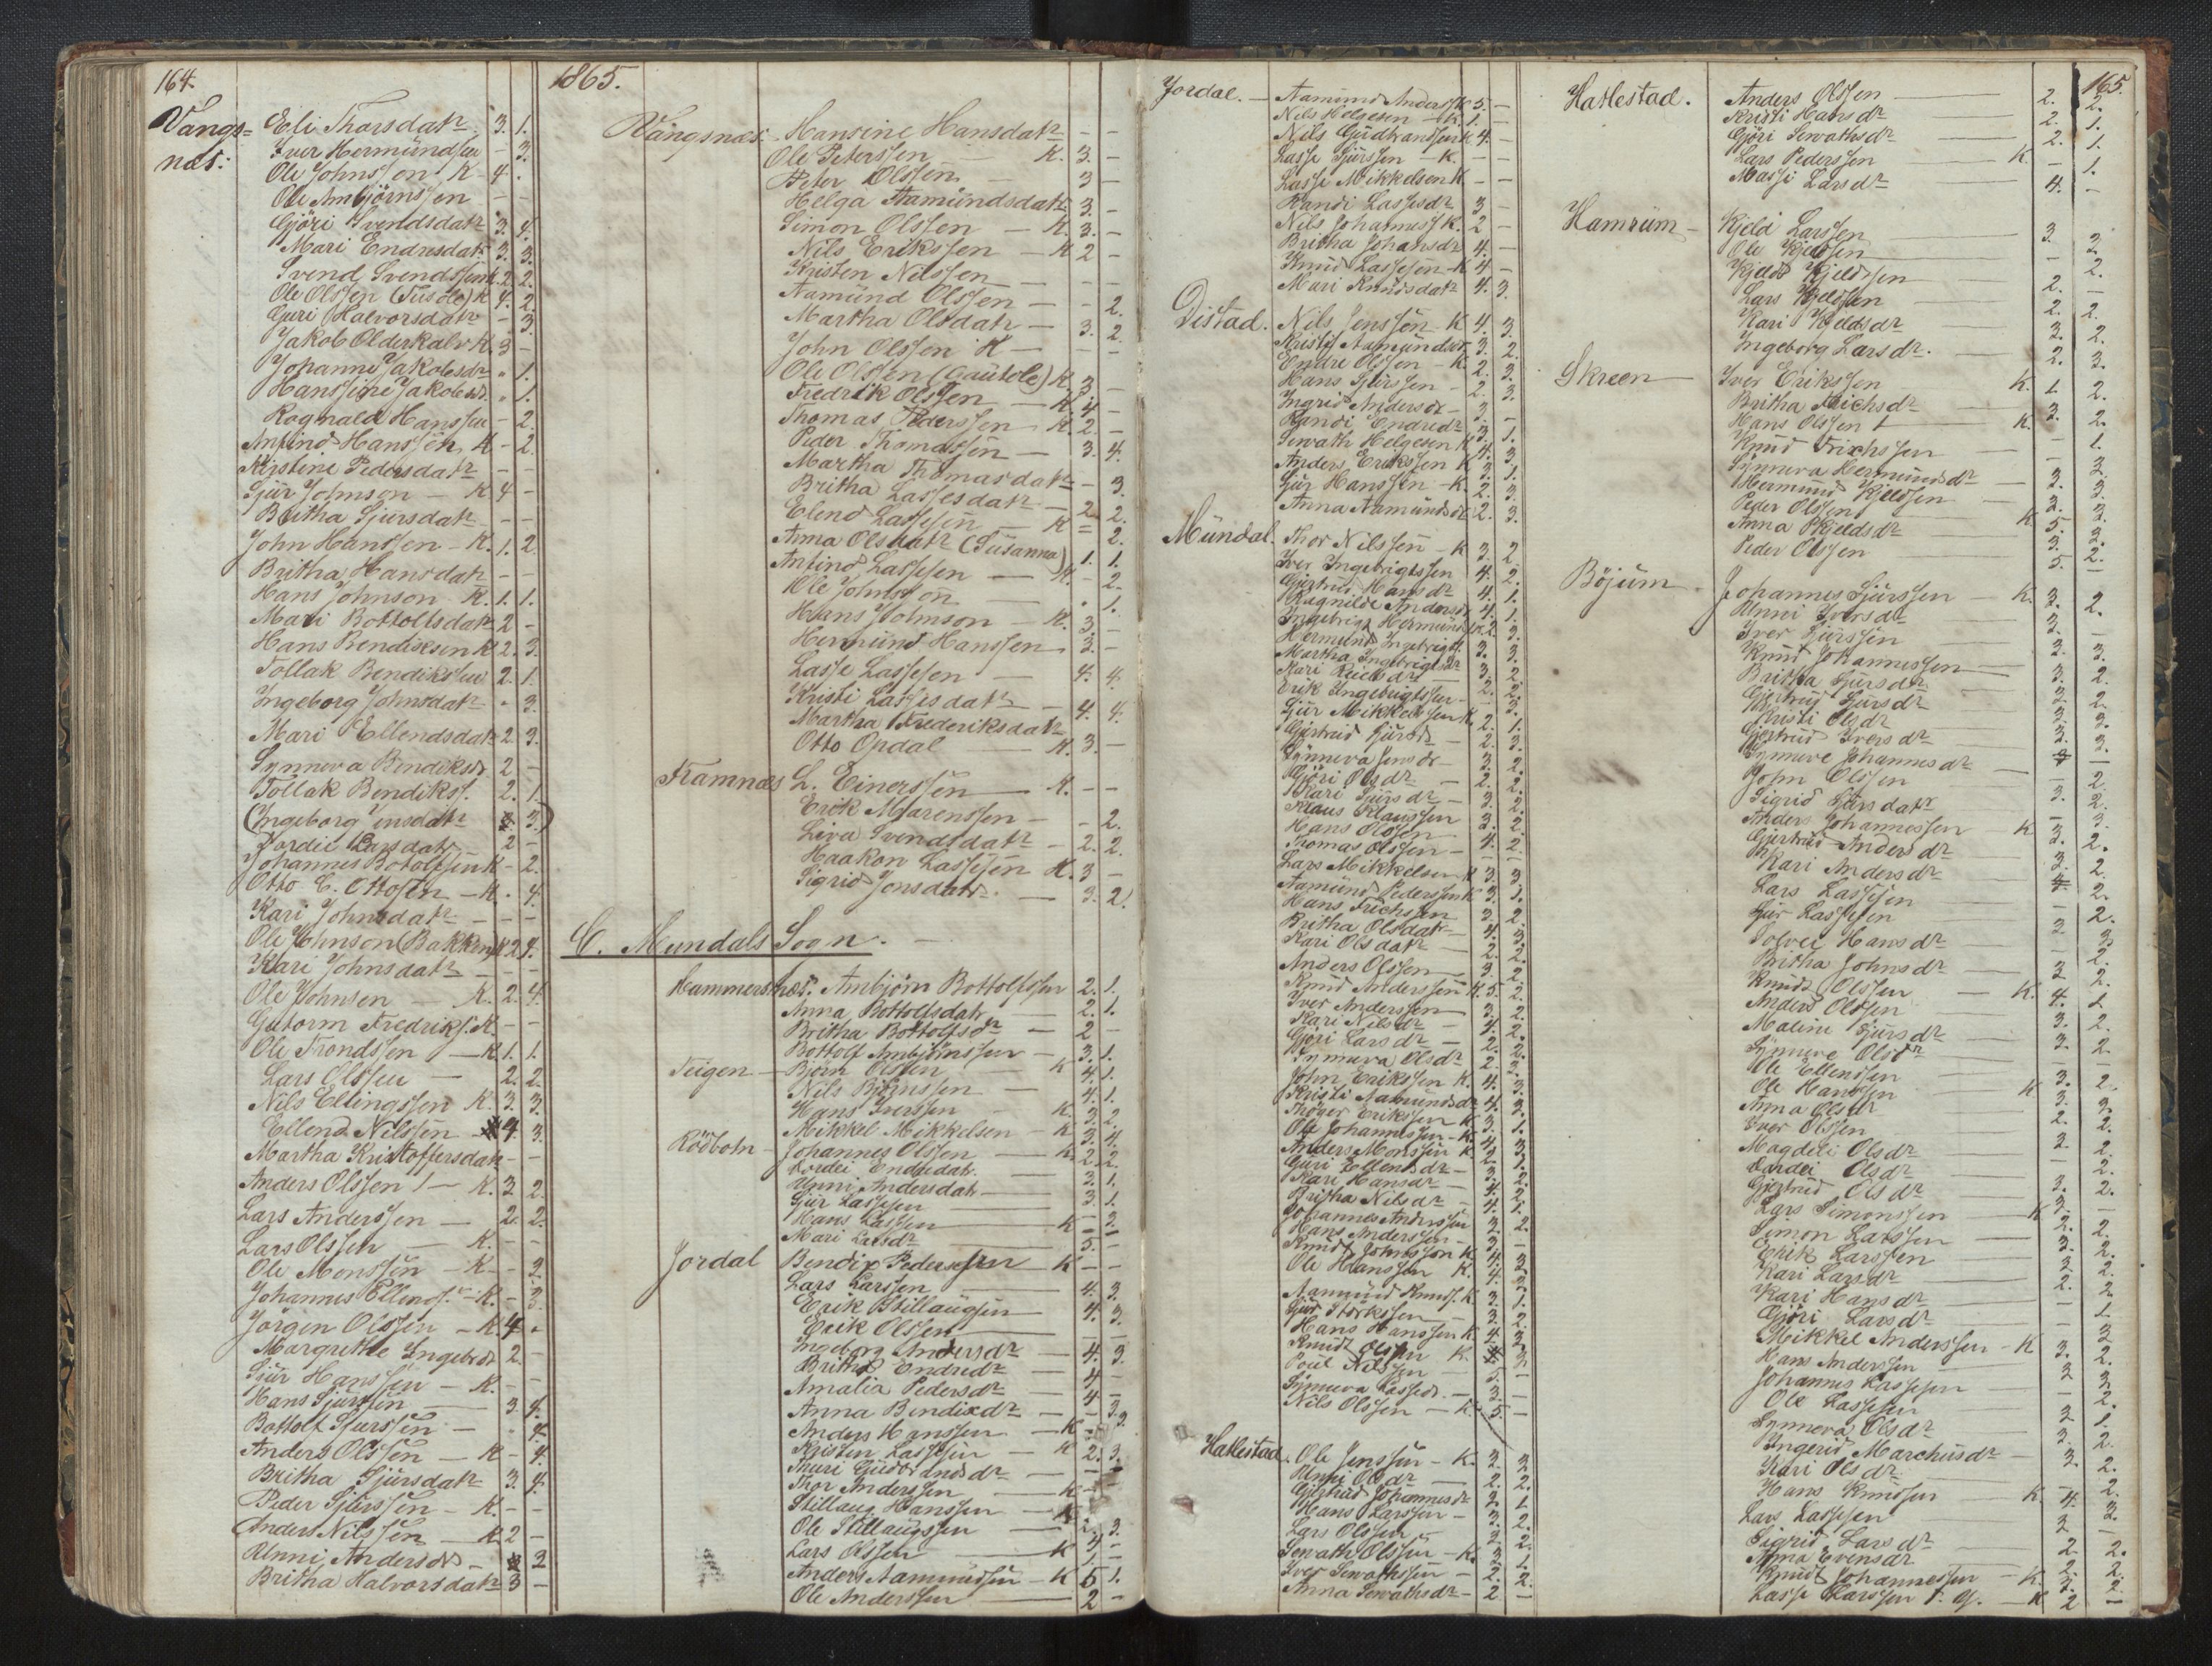 164.
Vangs=
næs:
Eli Thorsdatr 3. 1.
Iver Hermundsen - 3.
Ole Johnssen K - 4. -
Ole Ambjörnssen - -
Gjöri Svendsdatr 3. 4.
Mari Endresdatr 3. 3.
Svend Svendssen K. 2. 2.
Ole Olssen (Tusole) K 4. 2.
Guri Halvorsdatr - 3.
Jakob Olderkalv K. 3 -
Johanne Jakobsdr " 1.
Hanssine Jakobsd. " 1.
Rognald Hanssen - 2.
Anfind Hanssön K - 2.
Kirstine Pedersdatr - -
Sjur Johnson - K 4 -
Britha Sjursdatr - -
John Hanssen - K. 1. 2.
Britha Hansdatr - -
Hans Johnson K. 1. 1.
Mari Bottolfsdatr 2 -
Hans Bendiksen K 2. 3.
Tollak Bendikssen 2. 1.
Ingeborg Johnsdatr - 3.
Mari Ellendsdatr 2 3.
Synneva Bendiksdr 2 -
Tollak Bendikss. 2. 1.
(Ingeborg Jensdatr 3.)
Dordie Larsdatr 2 -
Johannes Botolfsen K - 2.
Otto C. Ottosen - K. - 4.
Kari Johnsdatr - - -
Ole Johnson (Bakken) K 2. 4.
Kari Johnsdatr - - -
Ole Johnsen - K. 2. 4.
Gutorm Fredrikss. K. - -
Ole Trondssen - K 1. 1.
Lars Olssen - 2. 2.
Nils Ellingssen K. 3. 3.
Ellend Nilssen - 4. 3.
Martha Kristoffersdatr - -
Anders Olssen - K. 3. 2.
Lars Anderssen - 2. 2.
Lars Olssen - K. - -
Ole Monssen - K - - 2.
Johannes Ellends. - K. - 3.
Jörgen Olssen - K. 4. -
Margrethe Ingebrdr 2. -
Sjur Hanssen - K. - -
Hans Sjurssen - 3. 4.
Bottolf Sjurssen - - 4.
Anders Olssen - K - 4.
Britha Sjursdatr 3. 4.
Peder Sjurssen - K. - -
Anders Nilssen - K 2 -
Unni Andersdr - 2
Britha Halvorsdatr 3 -
1865.
Vangsnæs: Hansine Hansdatr - -
Ole Peterssen - K. 3. -
Peter Olssen - 3 -
Helga Aamundsdatr 3. -
Simon Olssen - K. 3. -
Nils Erikssen - K 2 -
Kristen Nilssen - - -
Aamund Olssen - - 2.
Martha Olsdatr - 3. 2.
John Olssen K - - -
Ole Olssen (Gautole) K. 3 -
Fredrik Olssen - K. 4 -
Thomas Pederssen K. 2. -
Peder Thomassen - 3. 4.
Martha Thomasdatr - 3.
Britha Lassesdatr - 2 2.
Elend Lassesen - K = 2.
Anna Olsdatr (Susanna) 1. 1.
Anfind Lassesen - K. - 2.
Ole Johnson - - 1.
Hans Johnson - K. 3 -
Hermund Hanssen 3. -
Lasse Lassesen - 4. 4.
Kristi Lassesdatr - 4. 4.
Martha Frederiksdatr
Otto Opdal K. 3. -
Framnæs L. Einerssen - K. - -
Erik Marenssen - - 2.
Liva Svendsdatr - 2. 2.
Haakon Lassesen K. 3 -
Sigrid Jonsdatr. - 3. 2.
C. Mundals Sogn. -
Hummersnæs. Ambjörn Bottolfssen 2. 1.
Anna Bottolfsdatr 2. 1.
Britha Bottolfsdr - 2 -
Bottolf Ambjörnssen - 3. 1.
Teigen - Björn Olssen - K 4. 1.
Nils Björnssen - 4. 1.
Hans Iverssen - K. 3. 2.
Mikkel Mikkelsen - K 3. 4.
Rödbotn - Johannes Olssen - K. 2. 2.
Dordei Endredatr. 3. 1.
Unni Andersdatr - 3. 1.
Sjur Lassesen
Hans Lassen - K - 3.
Mari Larsdr - 5. -
Jordal Bendix Pederssen - K - -
Lars Larssen - 4. 3.
Erik Stillaugsen - 4. 3.
Erik Olssen - - -
Ingeborg Andersdr - 4. 3.
Britha Endredr - 4 -
Amalia Pedersdr - 4 -
Anna Bendixdr - - 3.
Anders Hanssen - K - 3.
Kristen Lassesen - K 2. 3.
Thuri Gudbrandsdr - - -
Thor Anderssen - K - -
Stillaug Hanssen - K
Ole Stillaugssen - 2. 3.
Lars Olssen - K 4 -
Anders Aamundsen - K 5 1.
Ole Anderssen - 2 -
Jordal. - Aamund Anderss. K 5. -
Nils Helgesen - K. 1. -
Nils Gudbrandsen K 4. -
Lasse Sjurssen - K. - -
Lasse Mikkelsen K - -
Randi Lassesdr 3 -
Nils Johanness. K. 2 -
Britha Johansdr 4. -
Knud Lassesen - K 4 -
Mari Knudsdatr 4. 3.
Distad. Nils Jenssen - K 4. 3.
Kristi Aamundsdr 3. 2.
Endre Olssen - K. 2. 3.
Hans Sjurssen - 2 3.
Ingrid Andersdr - 3. -
Randi Endredr - 3. 1.
Sewath Helgesen K 4. 3
Anders Erikssen K 3. 1.
Sjur Hanssen - K. 2. 3.
Anna Aamundsdr 2. 3.
Mundal. Thor Nilssen - K 3 2
Iver Ingebrigtssen 4. 2.
Gjertrud Hansdr 4. 1.
Ragnilde Andersdr 4. 1.
Ingebrigt Hermunds. K 2. 3.
Hermund Ingebrigts. 3. 3.
Martha Ingebrigtsdr 3. 3.
Kari Reichsdr - 3. 2
Erik Ingebrigtssen - 2. 2.
Sjur Mikkelssen K. 2. 1.
Gjertrud Sjursd. - 2. 3.
Synneva Jensdr - 3. 2.
Gjöri Olsdr - 2. 2.
Kari Sjursdr - 3. 2.
Klaus Klaussen 3. 2.
Hans Olssen 4. 2
Thomas Olssen - - -
Lars Mikkelsen K 3. 3.
Aamund Pederssen K 3. 1.
Hans Frichssen 3. 2.
Britha Olsdatr - 4. 3.
Kari Olsdatr - 2. 2.
Anders Olssen - 3. 2.
Knud Anderssen K. 5. 2.
Iver Anderssen 3. 2.
Kari Nilsdr - 4. 2.
Gjöri Larsdr - 2. 2.
Synneva Olsdr 2. 3.
John Erikssen K. 4. 3.
Kristi Aamundsdr 4. 3.
Thöger Erikssen K 3. 1.
Ole Johannessen - K. 4. 3.
Anders Monssen K. 2. 1.
Guri Ellensdr - 3. 2
Kari Hansdr - 4. 2.
Britha Nilsdr - 4. 1.
Johannes Anderssen 3. 2.
Hans Anderssen - 3. -
Knud Johnsson K. 4. 3.
Ole Hanssen K. 4. 3.
Aamund Knuds. K. 3. 1.
Sjur Störkssen - 3. 2.
Hans Hanssen K. 4. 3.
Knud Olssen K. 3.
Poul Nilssen - 5. -
Synneva Lassedr. - 3. -
Nils Olssen - K. 5. -
Hatlestad. Ole Jenssen - K. 3. 3.
Unni Olsdr - 2. 2.
Gjertrud Johannesdr 2. 1.
Hans Larssen - 3. 2.
Lars Olssen - 3. 2.
Sewath Olssen - K. 3. 1.
Iver Sewathssen - 2. 2.
Anna Sewathsdr - 2 -
165.
Hatlestad. Anders Olssen - 2. 2.
Kristi Hansdr - 2. 1.
Gjöri Sewathsdr - 2. 1.
Lars Pederssen - K. - 1.
Massi Larsdr - 4. -
Hamrum - Kjeld Larssen - 3. 3.
Ole Kjeldsen - - 2.
Kjeld Kjeldssen - 2. -
Lars Kjeldsen 2. 2.
Kari Kjeldsdr 3. 2.
Ingeborg Larsdr. - 2. 3.
Skreen - Iver Erikssen K. 1. 2.
Britha Reichsdr - 3. 2.
Hans Olssen - K. - 1.
Knud Frichssen - 3.
Synneva Hermundsdr - 3. 3.
Hermund Kjeldsen - 2. 3.
Peder Olssen K. 5. 3.
Anna Kjeldsdr 3. 2.
Peder Olssen 5. -
Böjum. Johannes Sjurssen - K. 3. 2.
Unni Iversdr 3. -
Iver Sjurssen 3. 3.
Knud Johannessen - 3. 2.
Britha Sjursdr 3. 2.
Gjertrud Sjursdr 3. 3.
Kristi Olsdr 3. 3.
Gjertrud Iversdr - -
Synneve Johannesdr - - 2.
John Olssen 3. 2.
Sigrid Larsdatr - 3.
Anders Johannessen - K 3. 2.
Gjertrud Andersdr 3. 2.
Kari Andersdr - 2.
Lars Lassesen - 2.
Sjur Lassesen 3 3
Solvei Hansdr - 2.
Britha Johnsdr - 3 2.
Knud Olssen - K. 4. 1.
Anders Olssen 3. 2.
Malene Sjursdr - 3. 2.
Synneve Olsdr - -
Ole Ellendsen 3. 2.
Ole Hanssen - K 3. 3.
Anna Olsdr 2. 2.
Iver Olssen 3. 2.
Magdeli Olsdr - 2.
Dordei Olsdr - 3. 2.
Gjertrud Olsdr 3. -
Lars Simonssen - K 2. 2.
Simon Larssen - 3. 2.
Erik Larssen 3. 2.
Kari Larsdr 2. 2
Kari Hansdr - - 1.
Gjöri Larsdr - 3
Mikkel Anderssen - K 3. 2.
Hans Anderssen 3 3
Johannes Lassesen - 2.
Ole Lassesen 3 1.
Synneva Olsdr 3. 2.
Ingerid Marchusdr - 3. 2.
Kari Olsdr - 2.
Hans Knudsen - K. 4. 3.
Lars Lassesen 3 -
Sigrid Larsdr 2. 2.
Anna Evensdr 2. 2.
Knud Johannessen - K. 3. 2.
Lasse Larssen - K 2 -